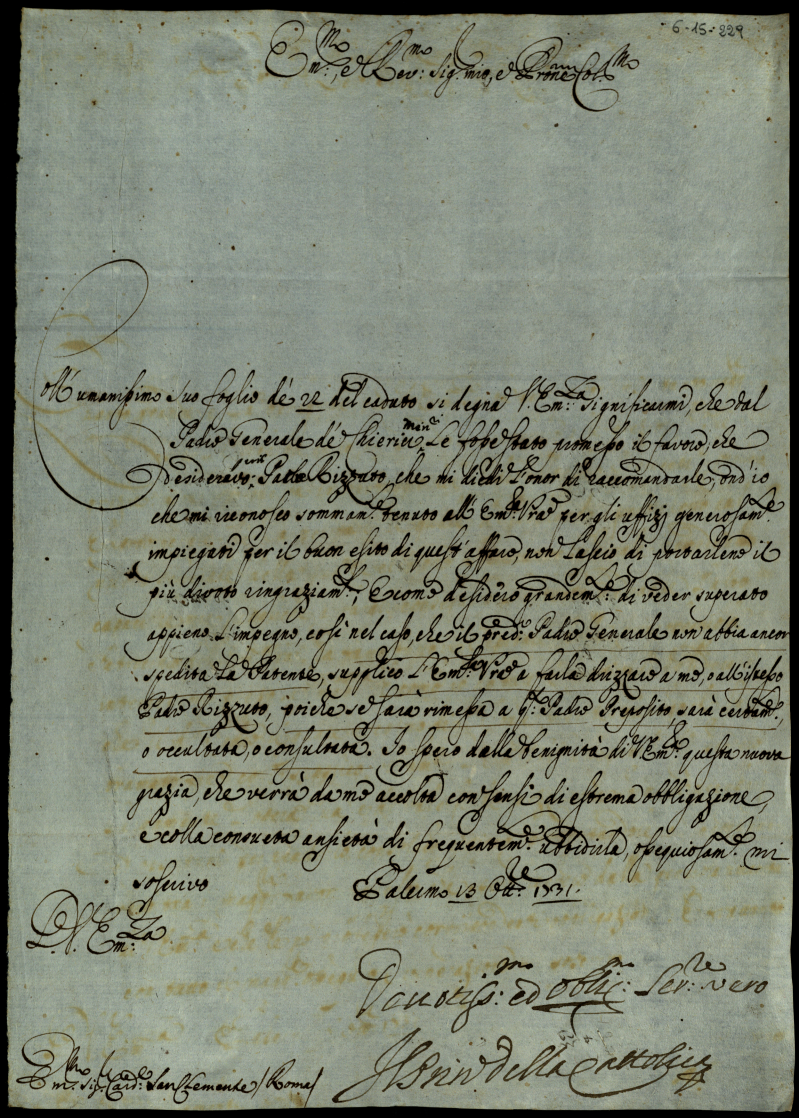 6-15-229
Em.mo, e Rev.mo Sig. mio, e Prone Col.mo
Coll'umanissimo suo foglio dè 22 del caduto si degna V. Em.za significarmi, che dal
Padre Generale dè Chierici Min.ri Le fosse stato promesso il favore, che
desiderava Padre Rizzuto, che mi diedi l'onor di raccomandarle, ond'io
che mi riconosco sommam.te tenuto all'Em.za Vra per gli uffizj generosam.te
impiegati per il buon esito di quest'affare, non lascio di portarlene il
più divoto ringraziam.to, E come desidero grandem.te di veder superato
appieno l'impegno, così nel caso, che il pred.o Padre Generale non abbia ancor
spedita La Patente, supplico l'Em.za Vra a farla drizzare a me, o all'istesso
Padre Rizzuto, poiche se sarà rimessa a q.to Padre Preposito sarà certam.te,
o occultata, o consultata. Io spero dalla benignità di V. Em.za questa nuova
grazia, che verrà da me accolta con sensi di estrema obbligazione,
e colla consueta ansietà di frequentem.te ubbidirla, ossequiosam.te mi
soscrivo Palermo 13 Ott.re 1731.
D. V. Em.za
Devotiss.mo ed oblig.mo Ser.re vero
Il Prin.e della Cattolica
Em.mo Sig. Card.e San Clemente / Roma /